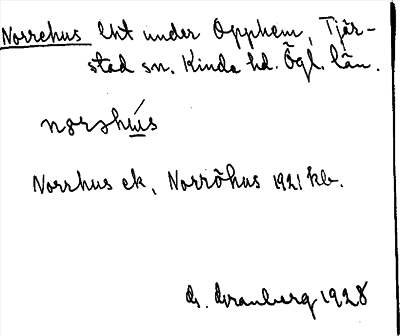 Norrehus lht under Opphem, Tjär-
stad sn. Kinda hd. Ögl. län.
norshús
Norrhus ek, Norröhus 1921 kb.
G. Granberg 1928